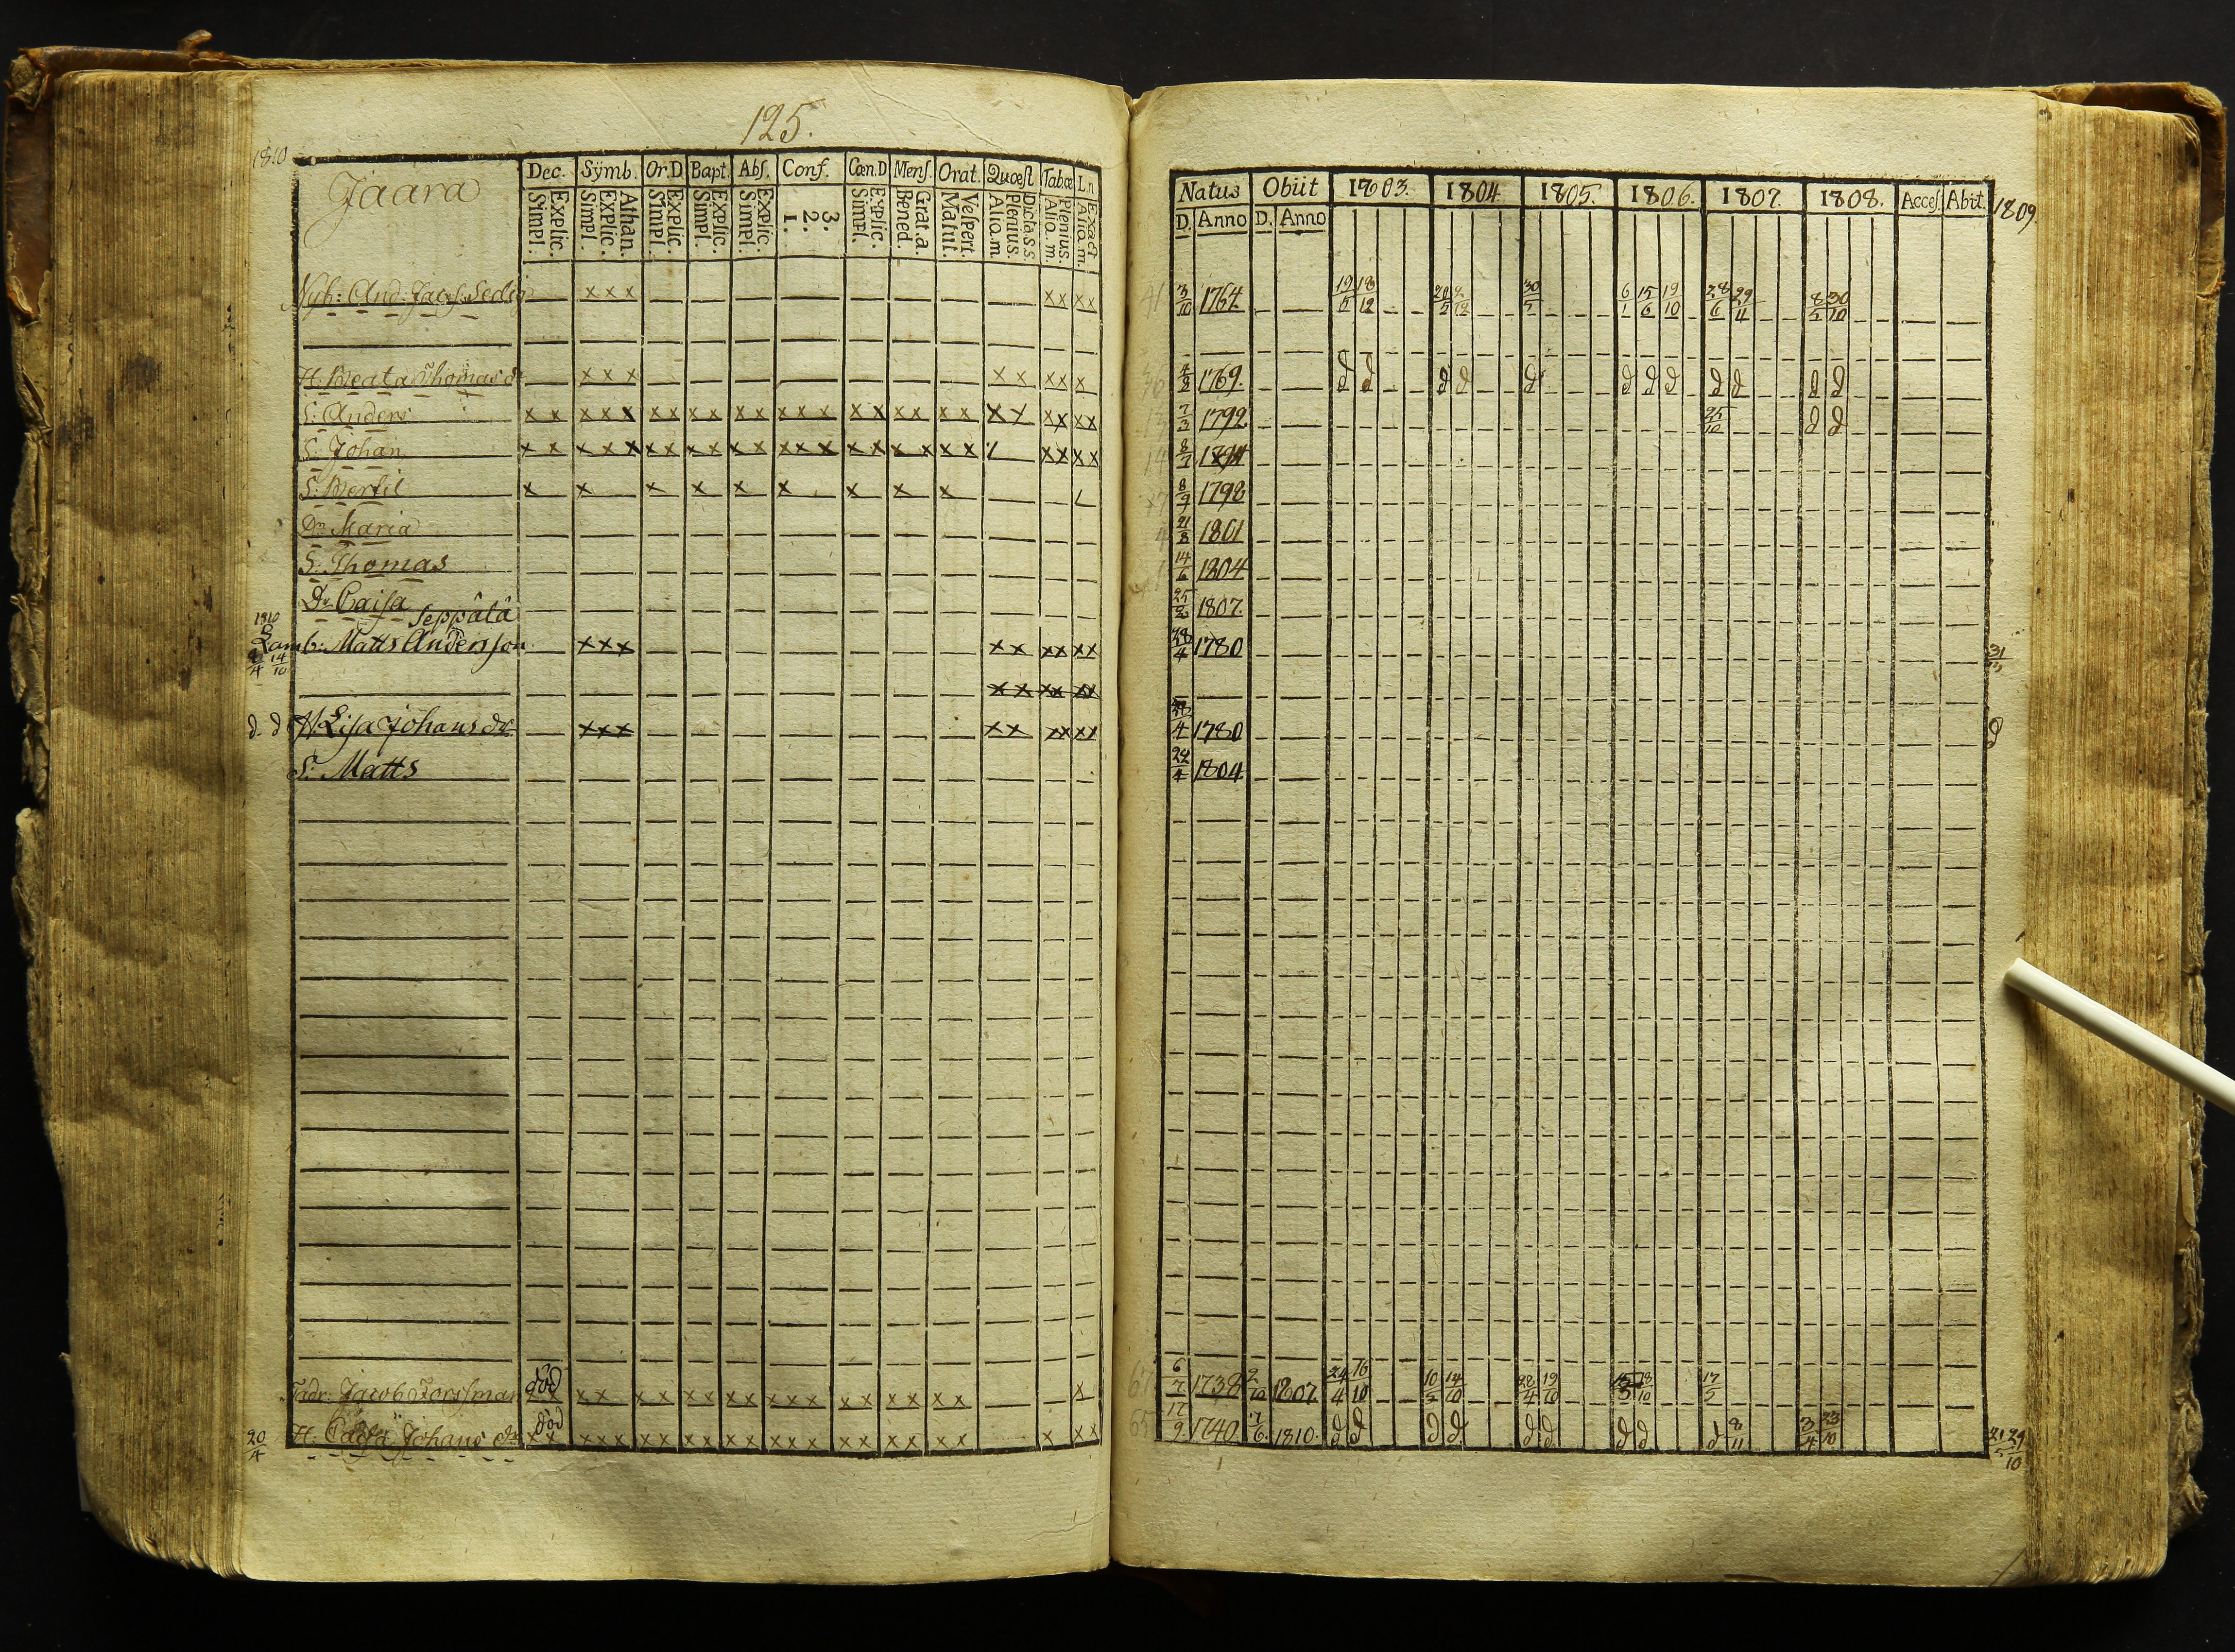 125.
1810
Jaara
Dec. Sÿmb. Or.D Bapt. Abſ. Conf. Cœn.D Menſ. Orat. Quœſt Tab.œ L.n
Explic. Simpl. Athan. Explic. Simpl. Explic. Simpl. Explic. Simpl. Explic. Simpl. 3. 2. 1. Explic. Simpl. Grat.a. Bened. Veſpert. Matut. Dicta.s.s. Plenius. Alio.m Plenius. Alio.m. Exact Alio.m.
Nyb: And: Jacſ: Sedig x x x x x x x
H. Beata Thomas dr x x x x x x x x
S: Anders x x x x x x x x x x x x x x x x x x x x x x x x x
S: Johan x x x x x x x x x x x x x x x x x x x x x x x x
S: Bertil x x x x x x x x x
Dr Maria
S: Thomas
Dr Caisa
Seppälä
1810
Lamb: Matts Andersson x x x x x x x x x
4 14
4 10
x x x x x x
d d H: Lisa Johans dr x x x x x x x x x
S: Matts
död
Fadr: Jacob Forssman x x x x x x x x x x x x x x x x x x x x
död
20/4 H: Caisa Johans dr x x x x x x x x x x x x x x x x x x x x x x x x
Natus Obiit 1803. 1804. 1805. 1806. 1807. 1808. Acceſ. Abit. 1809.
D. Anno D. Anno
41 3/10 1764 19/5 18/12 20/5 2/12 30/5 6/1 15/6 19/10 28/6 29/11 8/5 30/10
36 4/2 1769. d d d d d d d d d d d d
7/3 1792 25/10 d d
8/7 1794
8/9 1798
21/8 1801
14/6 1804
25/2 1807.
28/4 1780 31
4 1780 d
24/4 1804
67 6/7 1738 2/10 1807. 24/4 16/10 10/5 14/10 28/4 19/10 18/10 17/5
65 17/9 1740 7/6 1810. d d d d d d d d d 8/11 3/4 23/10 21/5 29/10